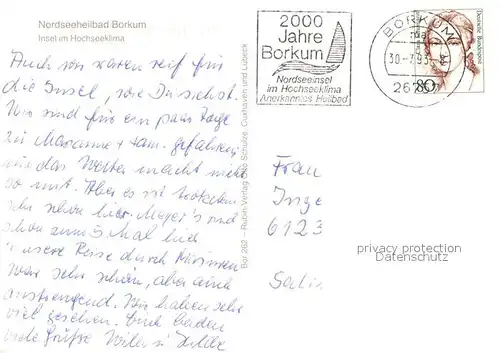 Nordseeheilbad Borkum
Insel im Hochseeklima
Auch wir waren reif für
die Insel, wie Du siehst.
Wir sind für ein paar Tage
zu Marianne + Fam. gefahren,
nur das Wetter macht nicht
so mit. Aber es ist trotzdem
sehr schön hier. Meyer's sind
schon zum 3. Mal hier
unsere Reise durch
war sehr schön, aber auch
anstrengend. Wir haben sehr
viel gesehen. Euch beiden
viele Grüße
Bor 262 – Rubin-Verlag Otto Schulze, Cuxhaven und Lübeck
2000
Jahre
Borkum
Nordseeinsel
im Hochseeklima
Anerkanntes Heilbad
BORKUM
30-7.93
Deutsche Bundespost
80
Frau
Inge
6123
privacy protection
Datenschutz